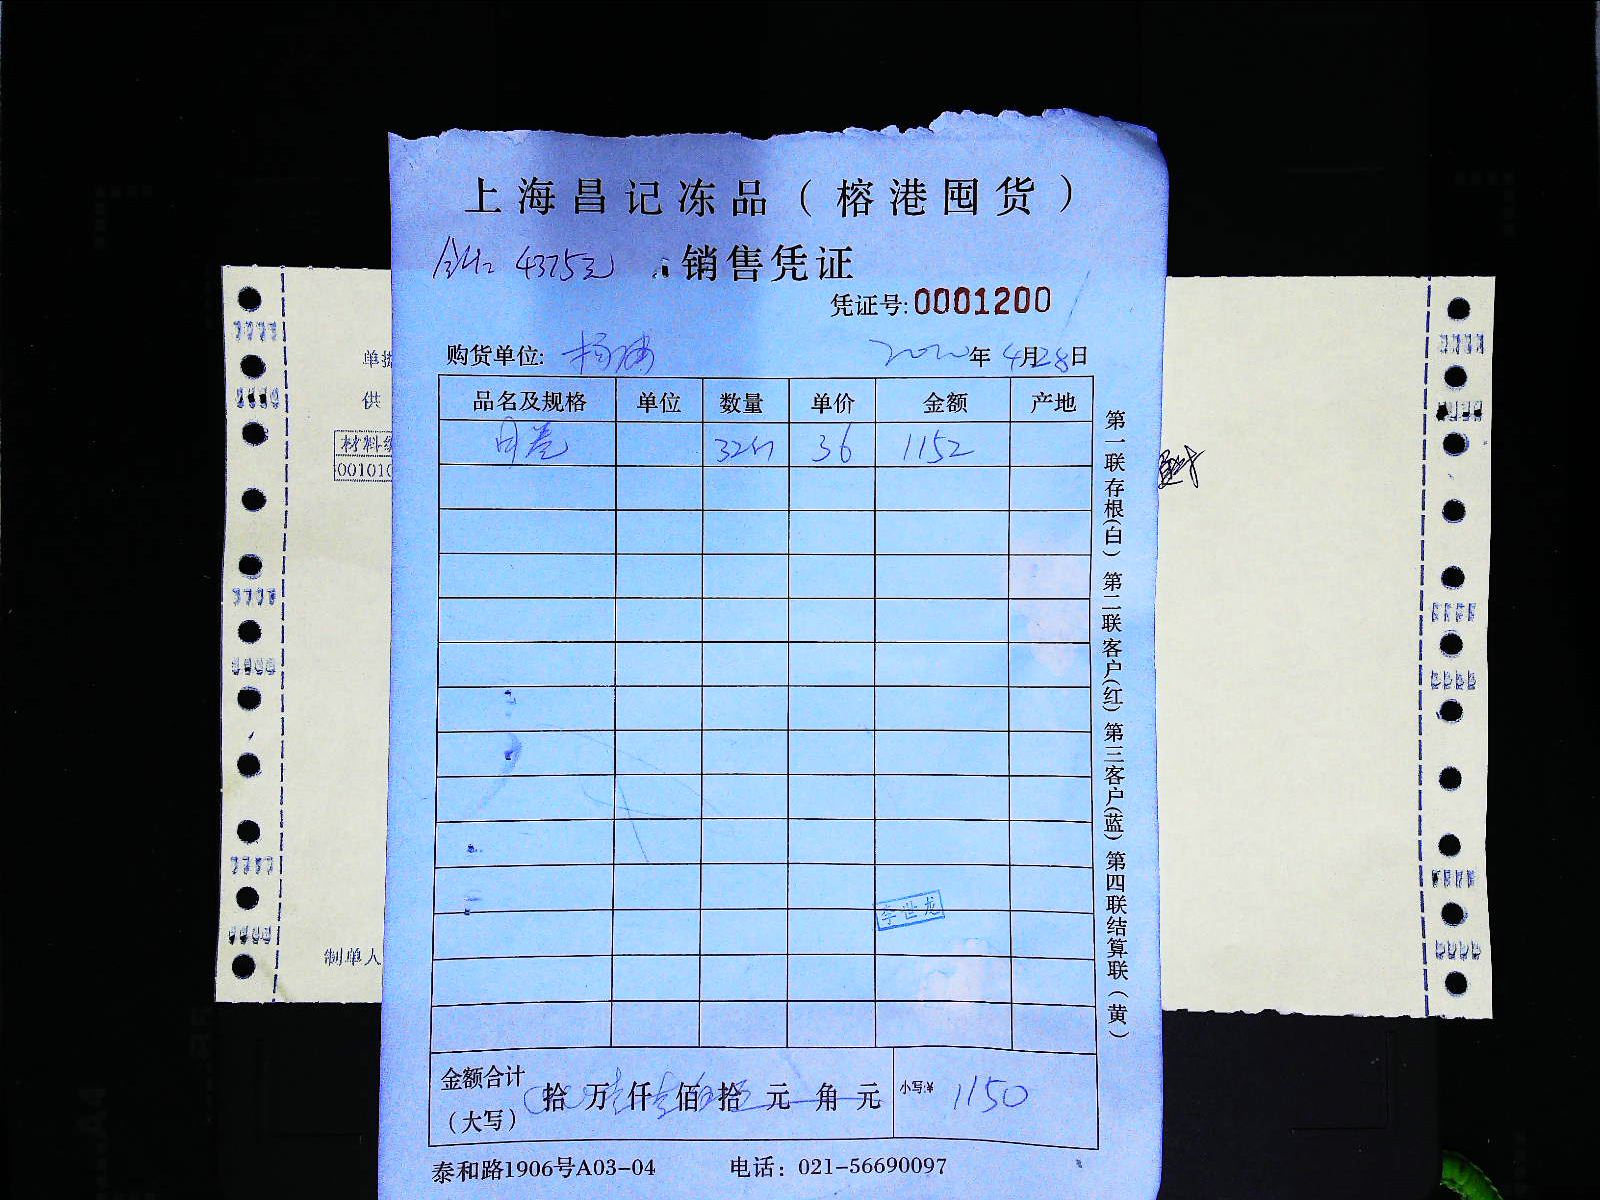 上海昌记冻品（榕港囤货）
合计: 4375元 销售凭证
凭证号:0001200
购货单位: 杨 2020年4月28日
品名及规格 单位 数量 单价 金额 产地
月卷 32 36 1152
第一联存根(白) 第二联客户(红) 第三客户(蓝) 第四联结算联(黄)
李世龙
金额合计（大写） 拾 万 仟 佰 拾 元 角 元 小写:¥ 1150
泰和路1906号A03-04 电话：021-56690097
单据
供
材料
00101
制单人